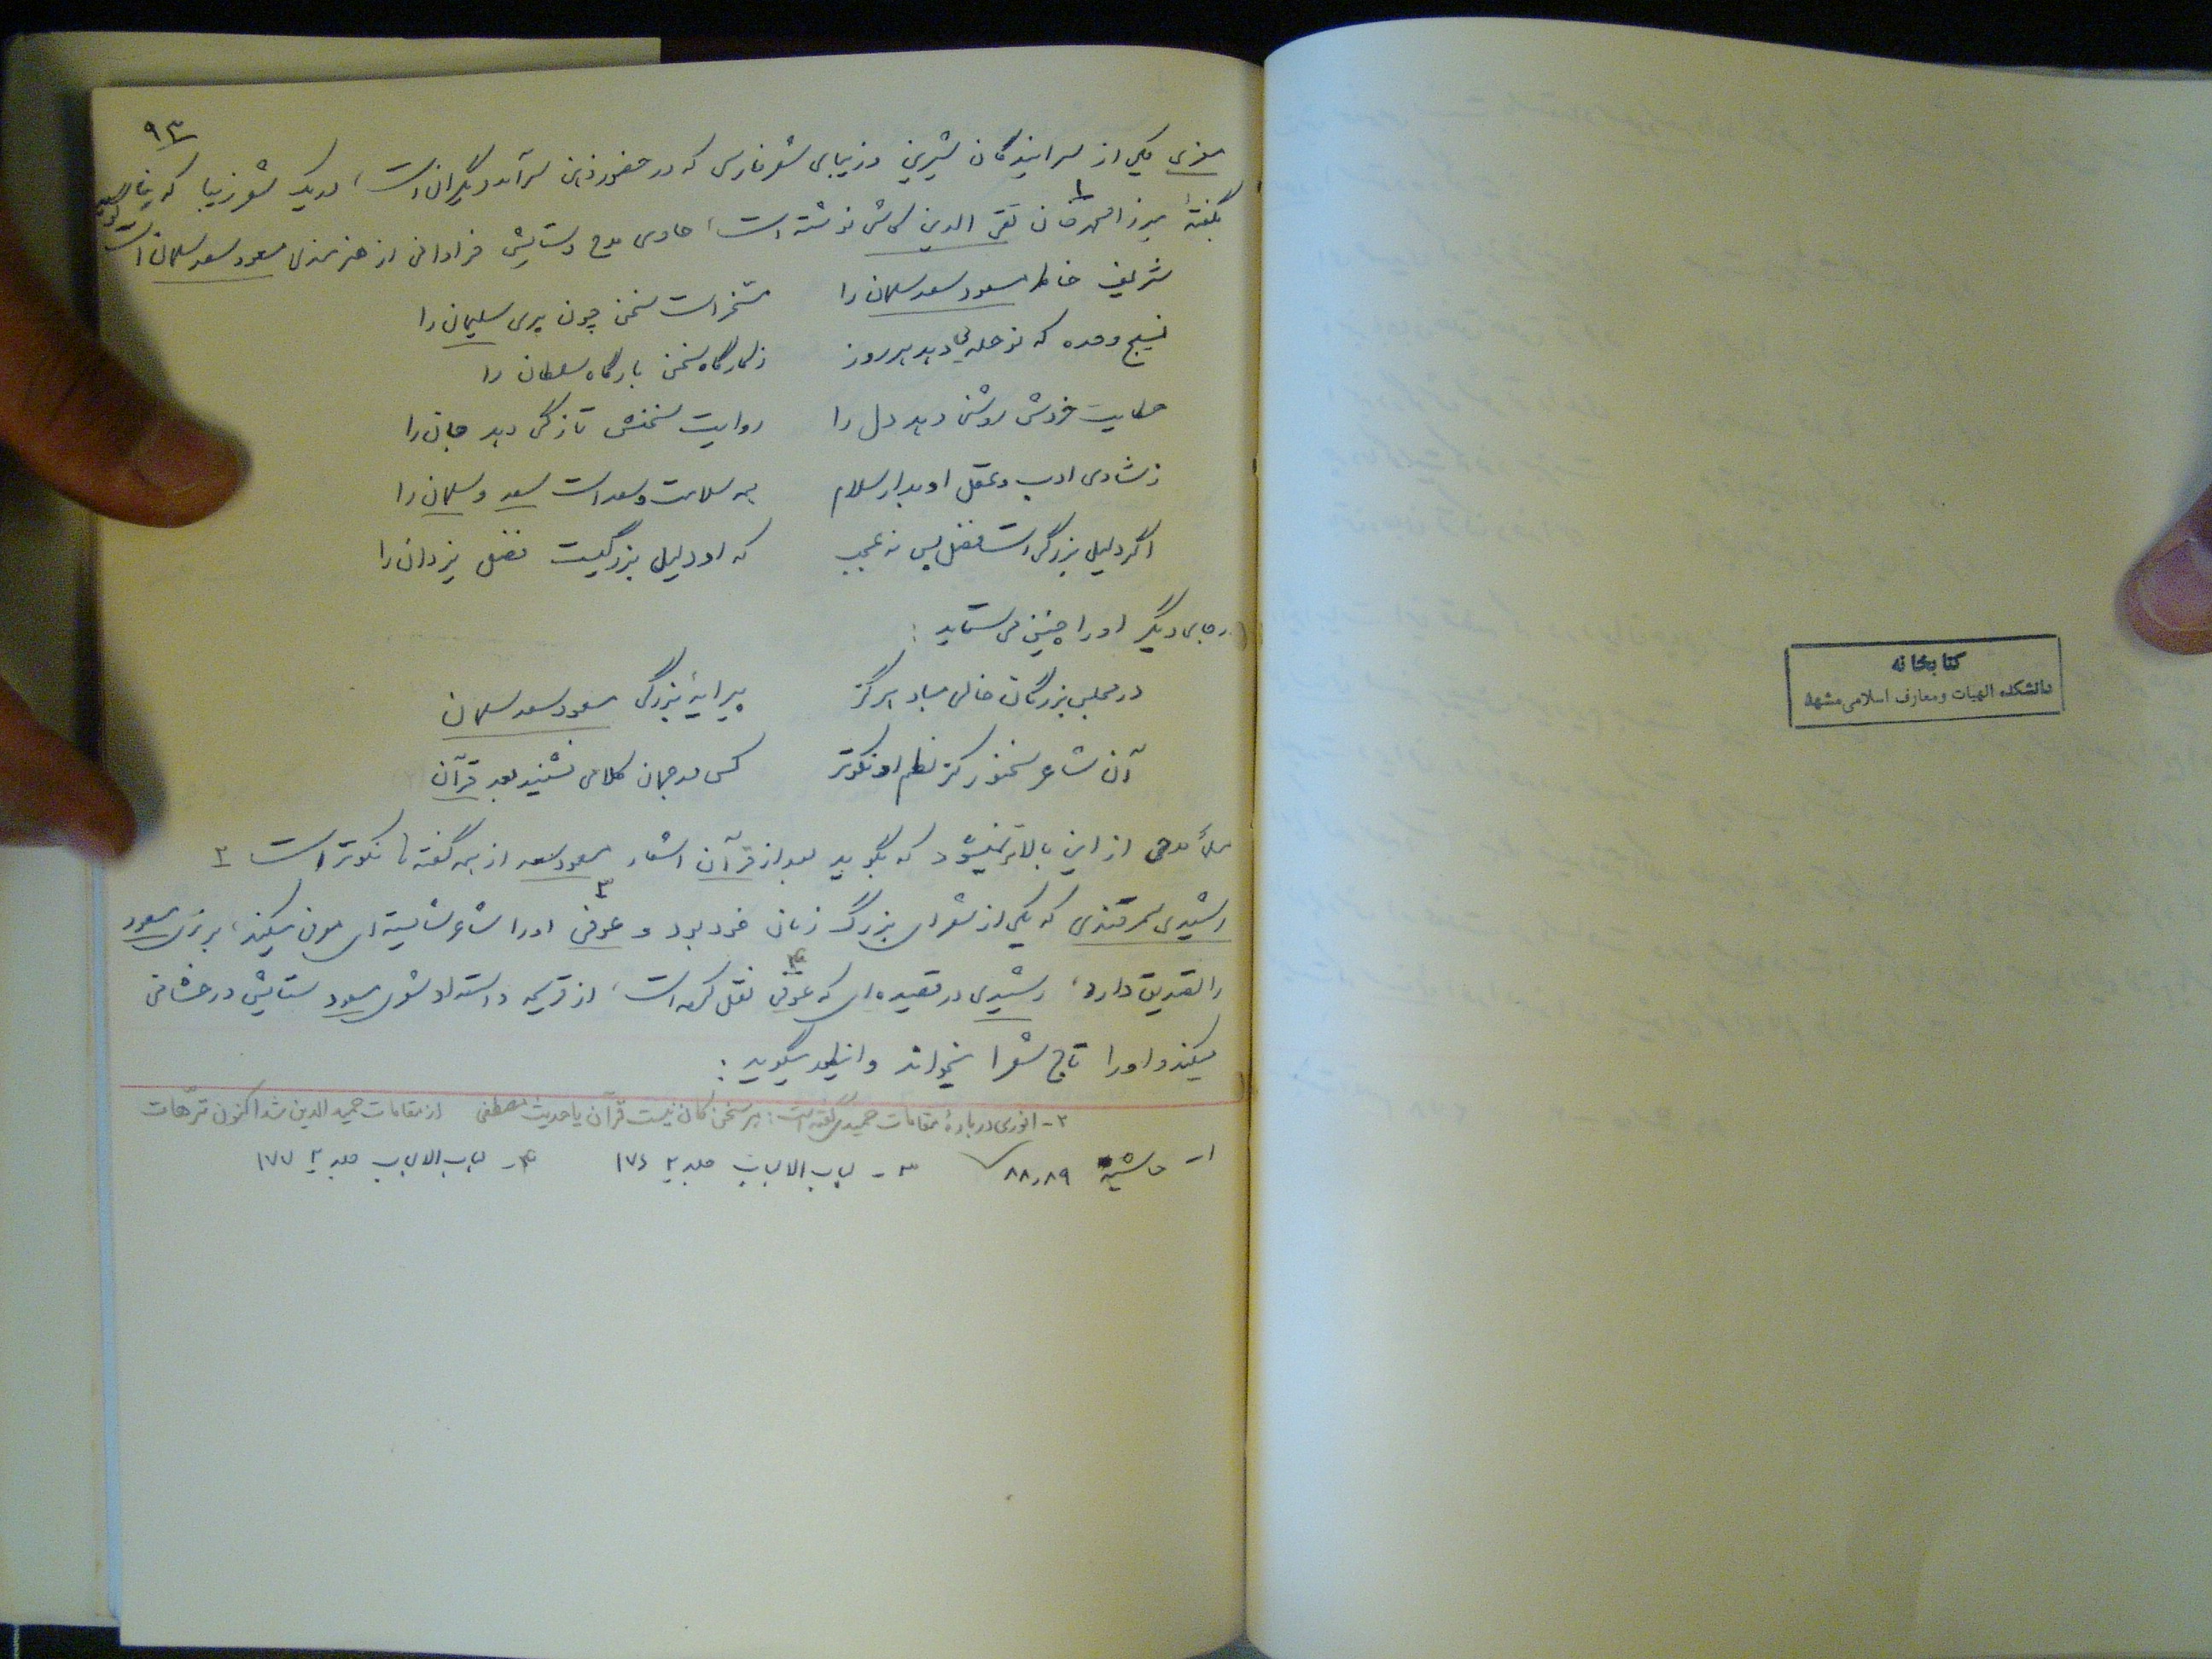 ۹۳
معزی یکی از سرایندگان شیرین و زیبای شعر فارسی که در حضور ذهن سرآمد دیگران است، در یک شعر زیبا که بنا
بگفتهٔ میرزا محمد خان تقی الدین کاشی نوشته است، حاوی مدح و ستایش فراوانی از هنرمندی مسعود سعد سلمان است
۱
شریف خاطر مسعود سعد سلمان را    مسخر است سخن چون پری سلیمان را
نسیج وحده که نو حله‌یی دهد هر روز    ز کارگاه سخن بارگاه سلطان را
حکایت خردش روشنی دهد دل را    روایت سخنش تازگی دهد جان را
ز شادی ادب و عقل او بدار سلام    همه سلامت و سعد است سعد و سلمان را
اگر دلیل بزرگی است فضل پس نه عجب    که او دلیل بزرگیست فضل یزدان را
در جای دیگر او را چنین می ستاید :
در مجلس بزرگان خالی مباد هرگز    پیرایهٔ بزرگی مسعود سعد سلمان
آن شاعر سخنور کز نظم او نکوتر    کس در جهان کلامی نشنید بعد قرآن
مدحی از این بالاتر نمیشود که بگوید بعد از قرآن اشعار مسعود سعد از همه گفته ها نکوتر است ۲
رشیدی سمرقندی که یکی از شعرای بزرگ زمان خود بود و عوفی ۳ او را شاعر شایسته ای معرفی میکند، برتری مسعود
را تصدیق دارد، رشیدی در قصیده ای که عوفی ۴ نقل کرده است، از قریحه و استعداد شعری مسعود ستایش درخشانی
میکند و او را تاج شعرا میخواند و اینطور میگوید :
۲- انوری درباره مقامات حمیدی گفته است: هر سخن کان نیست قرآن یا حدیث مصطفی    از مقامات حمید الدین شد اکنون ترّهات
۱- حاشیه ۸۸،۸۹    ۳- لباب الالباب جلد ۲ ۱۷۶    ۴- لباب الالباب جلد ۲ ۱۷۷
کتابخانه
دانشکده الهیات و معارف اسلامی مشهد